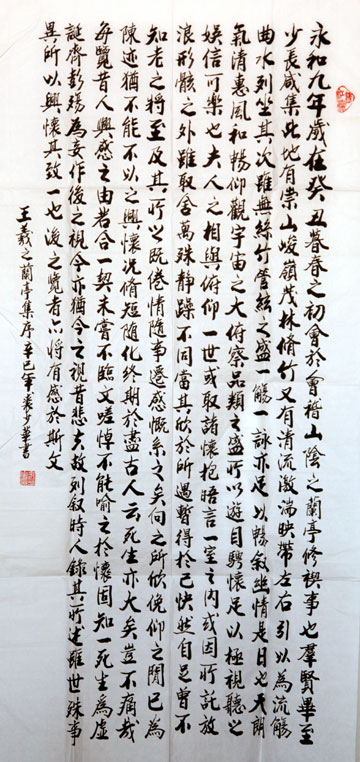 永和九年歲在癸丑暮春之初會於會稽山陰之蘭亭修禊事也羣賢畢至
少長咸集此地有崇山峻嶺茂林脩竹又有清流激湍映帶左右引以為流觴
曲水列坐其次雖無絲竹管絃之盛一觴一詠亦足以暢敘幽情是日也天朗
氣清惠風和暢仰觀宇宙之大俯察品類之盛所以遊目騁懷足以極視聽之
娛信可樂也夫人之相與俯仰一世或取諸懷抱晤言一室之內或因所託放
浪形骸之外雖取舍萬殊靜躁不同當其欣於所遇暫得於己快然自足曾不
知老之將至及其所以既倦情隨事遷感慨系之矣向之所欣俛仰之間已為
陳迹猶不能不以之興懷況脩短隨化終期於盡古人云死生亦大矣豈不痛哉
每覽昔人興感之由若合一契未嘗不臨文嗟悼不能喻之於懷固知一死生為虛
誕齊彭殤為妄作後之視今亦猶今之視昔悲夫故列敘時人錄其所述雖世殊事
異所以興懷其致一也後之覽者亦將有感於斯文
王羲之蘭亭集序辛巳年少華書